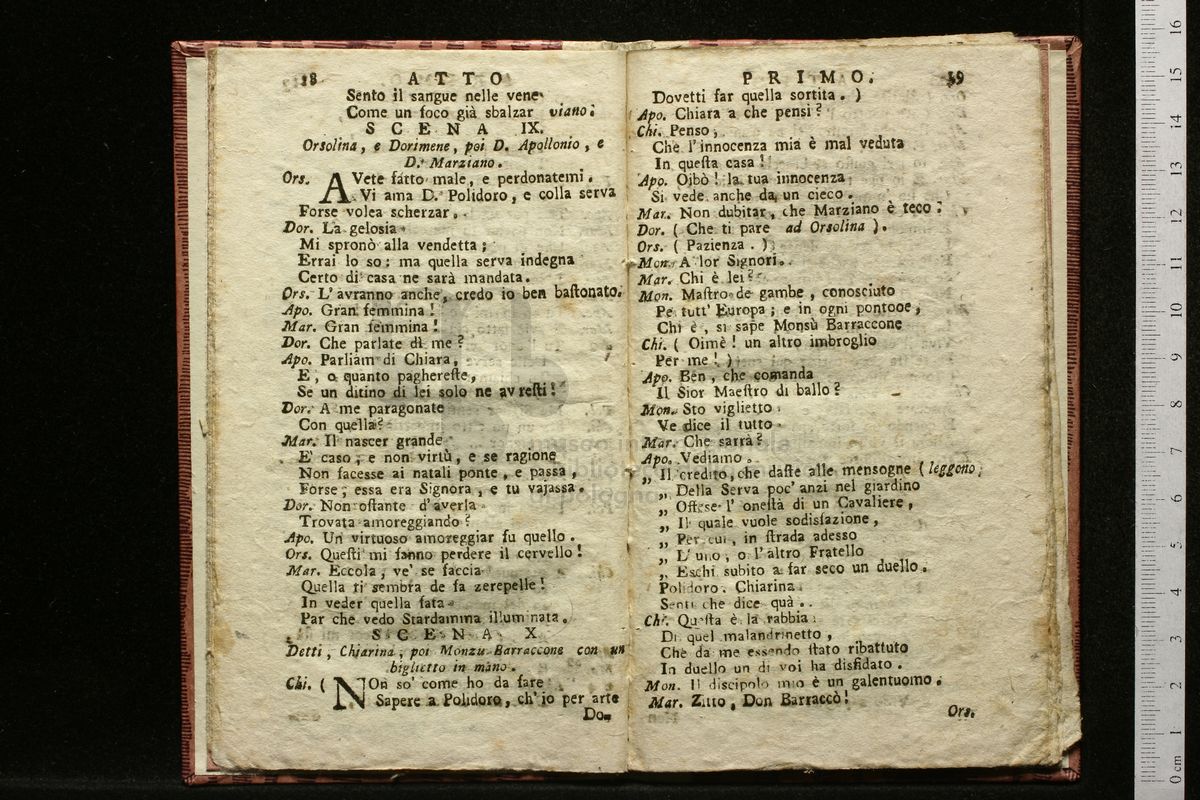 18 ATTO
Sento il sangue nelle vene
Come un foco già sbalzar viano.
SCENA IX.
Orsolina, e Dorimene, poi D. Apollonio, e
D. Marziano.
Ors. AVete fatto male, e perdonatemi.
Vi ama D. Polidoro, e colla serva
Forse volea scherzar.
Dor. La gelosia
Mi spronò alla vendetta;
Errai lo so: ma quella serva indegna
Certo di casa ne sarà mandata.
Ors. L'avranno anche, credo io ben baſtonato.
Apo. Gran femmina!
Mar. Gran femmina!
Dor. Che parlate di me?
Apo. Parliam di Chiara,
E, o quanto paghereſte,
Se un ditino di lei solo ne avreſti!
Dor. A me paragonate
Con quella?
Mar. Il nascer grande
E' caso, e non virtù, e se ragione
Non facesse ai natali ponte, e passa,
Forse, essa era Signora, e tu vajassa.
Dor. Non oſtante d'averla
Trovata amoreggiando?
Apo. Un virtuoso amoreggiar fu quello.
Ors. Queſti mi fanno perdere il cervello!
Mar. Eccola, ve' se faccia
Quella ti sembra de fa zerepelle!
In veder quella fata
Par che vedo Stardamma illuminata.
SCENA X
Detti, Chiarina, poi Monzu Barraccone con un
biglietto in mano.
Chi. ( NOn so' come ho da fare
Sapere a Polidoro, ch'io per arte
Do-
PRIMO. 19
Dovetti far quella sortita. )
Apo. Chiara a che pensi?
Chi. Penso,
Che l'innocenza mia è mal veduta
In queſta casa!
Apo. Oibò! la tua innocenza
Si vede anche da un cieco.
Mar. Non dubitar, che Marziano è teco.
Dor. ( Che ti pare ad Orsolina ).
Ors. ( Pazienza. )
Mon. A lor Signori.
Mar. Chi è lei?
Mon. Maſtro de gambe, conosciuto
Pe tutt' Europa; e in ogni pontone,
Chi è, si sape Monsù Barraccone
Chi. ( Oimè! un altro imbroglio
Per me! )
Apo. Ben, che comanda
Il Sior Maeſtro di ballo?
Mon. Sto viglietto
Ve dice il tutto.
Mar. Che sarrà?
Apo. Vediamo.
„ Il credito, che daſte alle mensogne ( leggono,
„ Della Serva poc'anzi nel giardino
„ Offese l'oneſtà di un Cavaliere,
„ Il quale vuole sodisfazione,
„ Per cui, in ſtrada adesso
„ L'uno, o l'altro Fratello
„ Eschi subito a far seco un duello.
Polidoro. Chiarina
Senti che dice quà..
Chi. Queſta è la rabbia
Di quel malandrinetto,
Che da me essendo ſtato ribattuto
In duello un di voi ha disfidato.
Mon. Il discipolo mio è un galentuomo.
Mar. Zitto, Don Barraccò!
Ors.
0 cm 1 2 3 4 5 6 7 8 9 10 11 12 13 14 15 16